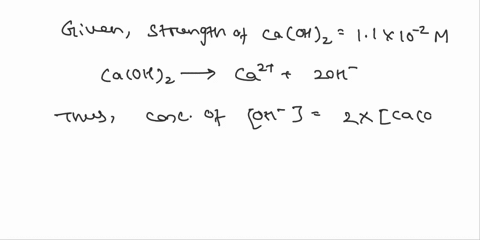 Given, Strength of Ca(OH)₂ = 1.1 × 10⁻² M
Ca(OH)₂ ⟶ Ca²⁺ + 2OH⁻
Thus, Conc. of [OH⁻] = 2 × [Ca(O